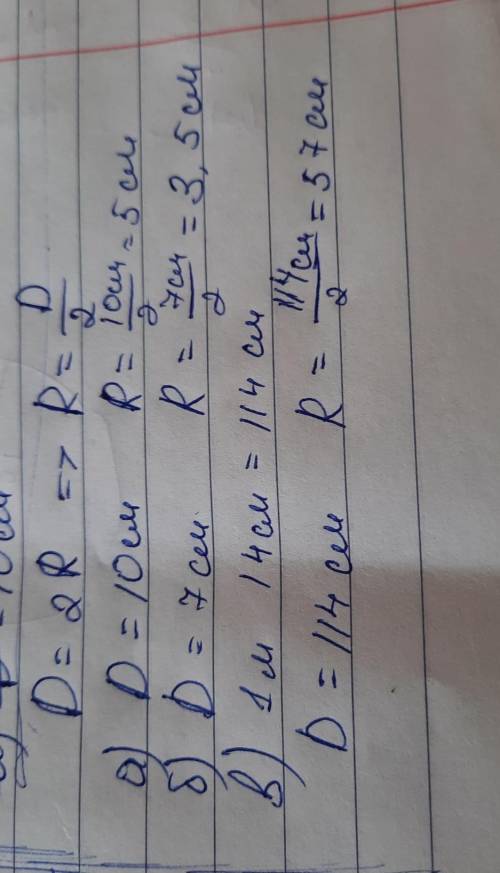 D = 2R => R = D/2
а) D = 10 см R = 10см/2 = 5 см
б) D = 7 см R = 7см/2 = 3,5 см
в) 1 м 14 см = 114 см
D = 114 см R = 114см/2 = 57 см